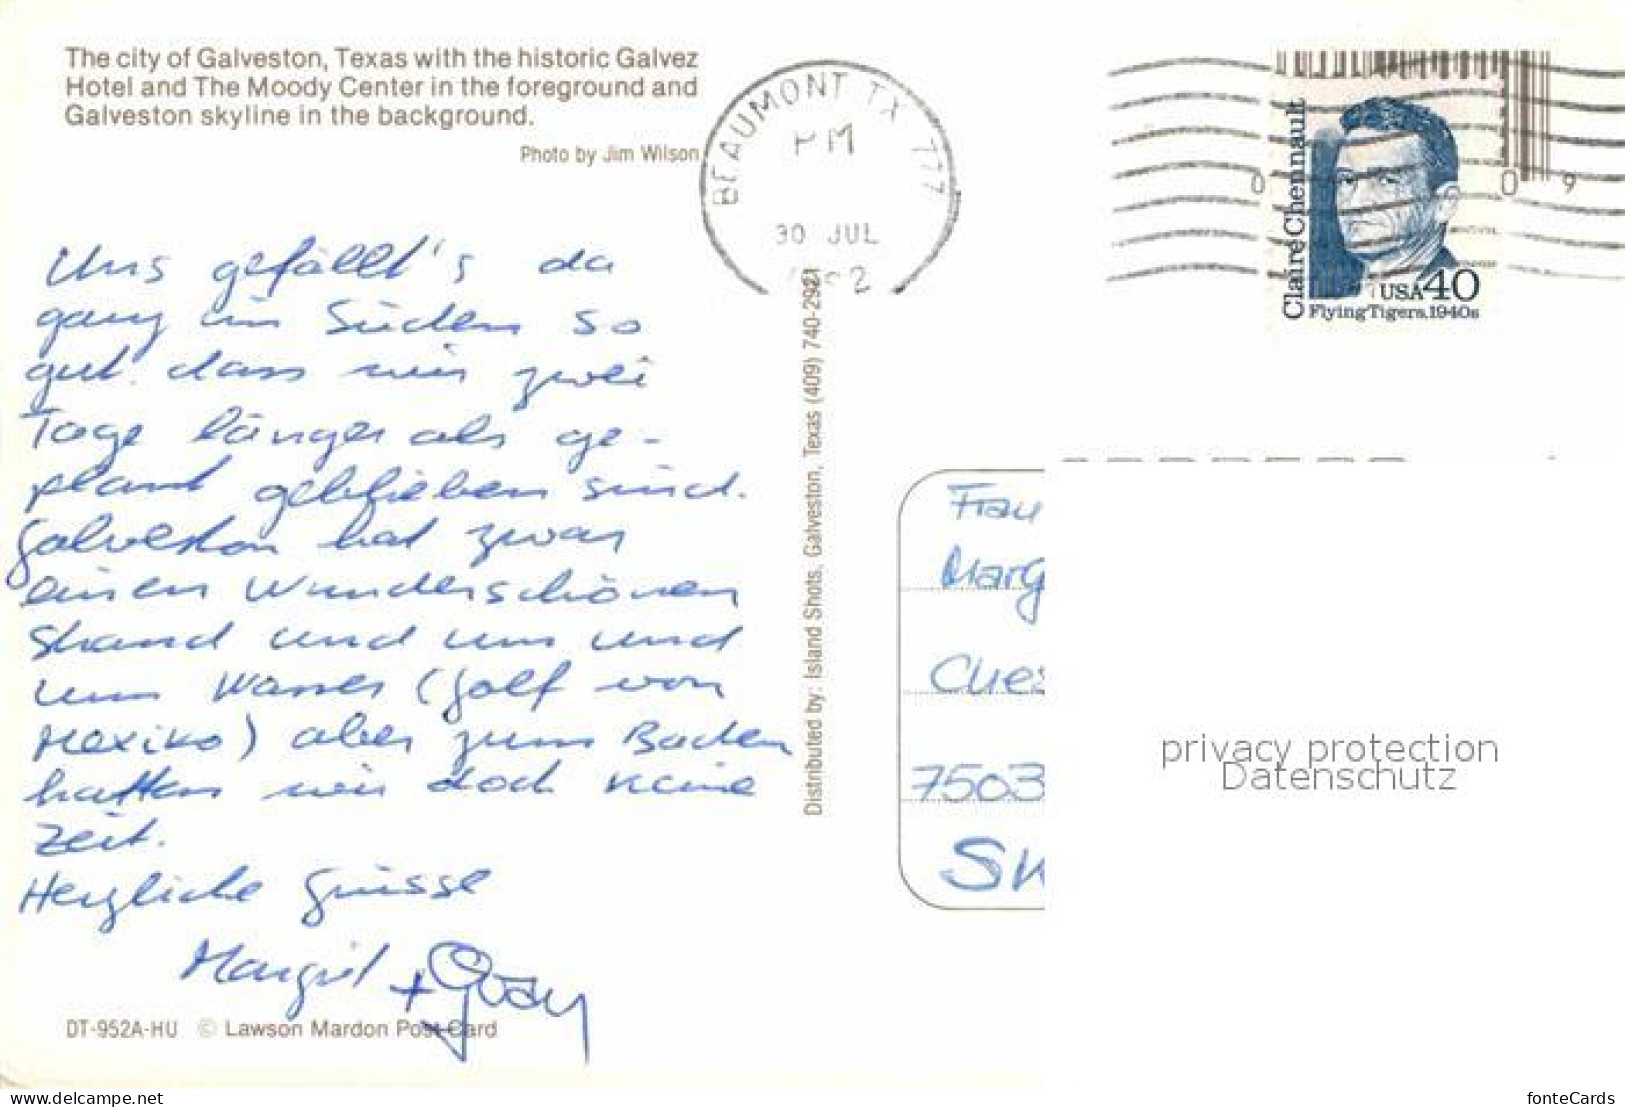 The city of Galveston, Texas with the historic Galvez
Hotel and The Moody Center in the foreground and
Galveston skyline in the background.
Photo by Jim Wilson
Uns gefällt's da
ganz im Süden so
gut, dass wir zwei
Tage länger als ge-
plant geblieben sind.
Galveston hat zwar
einen wunderschönen
Strand und um und
um Wasser (Golf von
Mexiko) aber zum Baden
hatten wir doch keine
Zeit.
Herzliche Grüsse
Margrit +
DT-952A-HU © Lawson Mardon Post Card
Distributed by: Island Shots, Galveston, Texas (409) 740-2921
BEAUMONT TX 777
PM
30 JUL
Claire Chennault
USA 40
Flying Tigers, 1940s
0 0 9
Frau
Marg
Ches
7503
SW
privacy protection
Datenschutz
www.oldthing.com
fonteCards